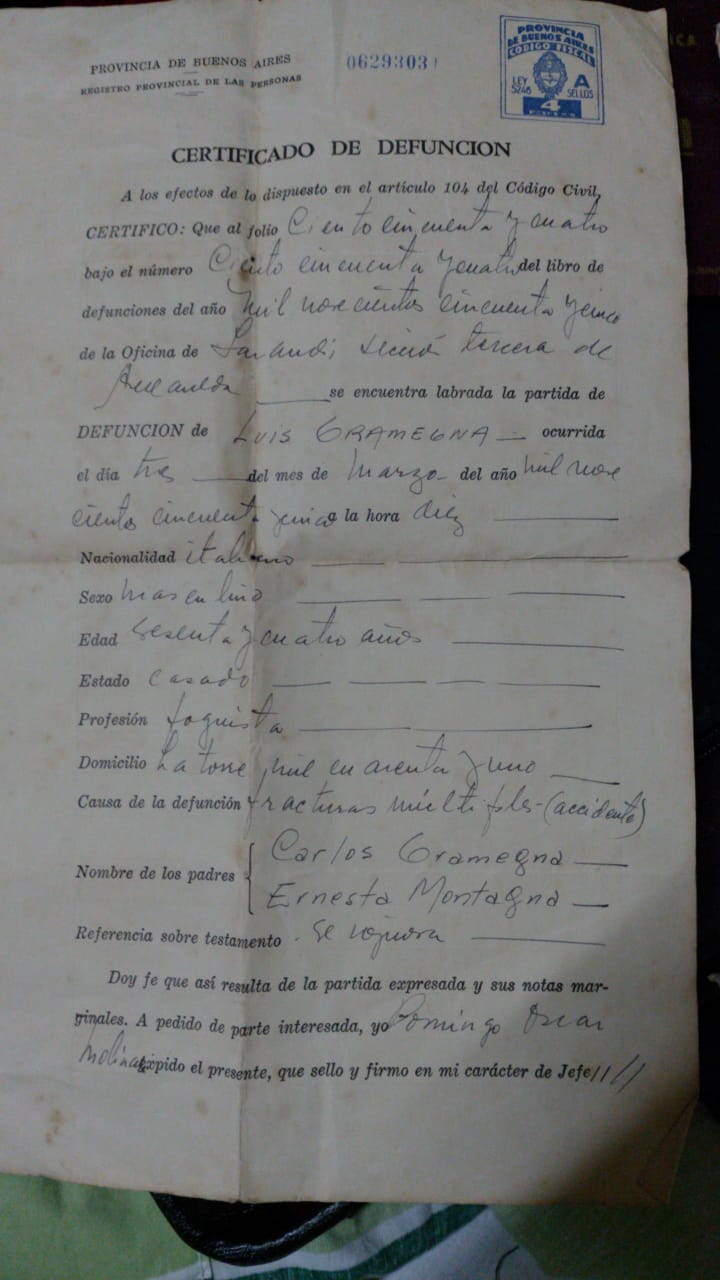 PROVINCIA DE BUENOS AIRES
REGISTRO PROVINCIAL DE LAS PERSONAS
0629303
PROVINCIA
DE BUENOS AIRES
CODIGO FISCAL
LEY
5246
A
SELLOS
4
PESOS
CERTIFICADO DE DEFUNCION
A los efectos de lo dispuesto en el artículo 104 del Código Civil,
CERTIFICO: Que al folio Ciento cincuenta y cuatro
bajo el número Ciento cincuenta y cuatro del libro de
defunciones del año Mil novecientos cincuenta y cinco
de la Oficina de Sarandi, sección tercera de
Avellaneda se encuentra labrada la partida de
DEFUNCION de LUIS GRAMEGNA ocurrida
el día tres del mes de marzo del año mil nove
cientos cincuenta y cinco a la hora diez
Nacionalidad italiano
Sexo masculino
Edad sesenta y cuatro años
Estado casado
Profesión foguista
Domicilio La torre mil cuarenta y uno
Causa de la defunción fracturas múltiples - (accidente)
Nombre de los padres Carlos Gramegna
Ernesta Montagna
Referencia sobre testamento - se ignora
Doy fe que así resulta de la partida expresada y sus notas mar-
ginales. A pedido de parte interesada, yo Domingo Oscar
Molina expido el presente, que sello y firmo en mi carácter de Jefe ////